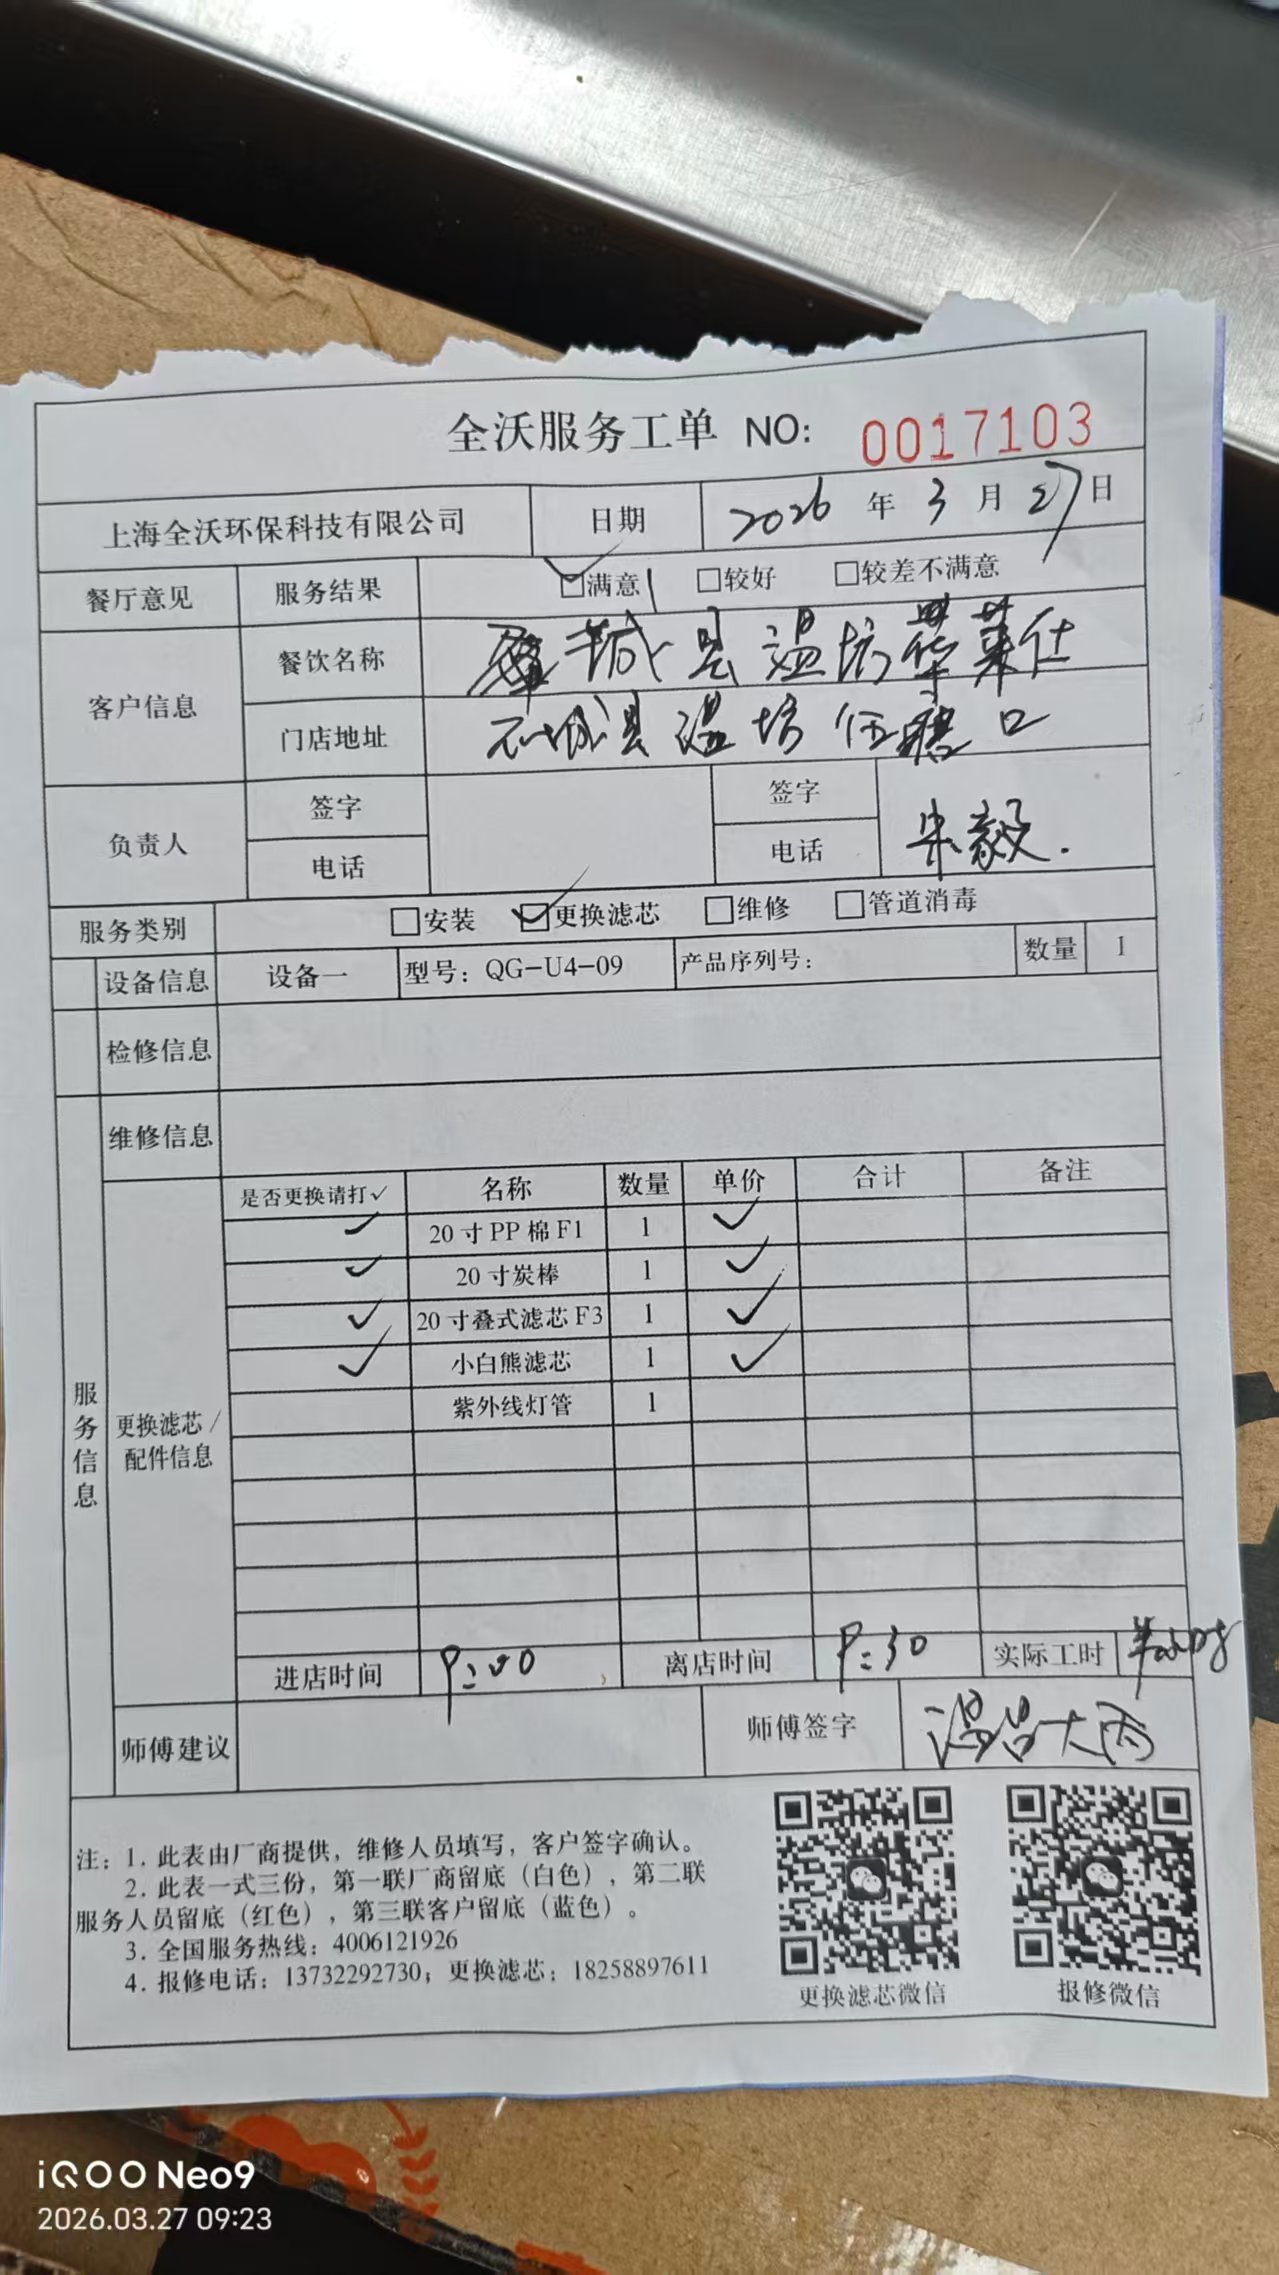 全沃服务工单 NO: 0017103
上海全沃环保科技有限公司 日期 2026 年 3 月 27 日
餐厅意见 服务结果 ☑满意 □较好 □较差不满意
客户信息 餐饮名称 城县温坊华莱仕
门店地址 石城县温坊 口
负责人 签字 签字 朱毅.
电话 电话
服务类别 □安装 ☑更换滤芯 □维修 □管道消毒
设备信息 设备一 型号：QG-U4-09 产品序列号： 数量 1
检修信息
维修信息
服务信息
更换滤芯/配件信息
是否更换请打✓ 名称 数量 单价 合计 备注
✓ 20寸PP棉F1 1 ✓
✓ 20寸炭棒 1 ✓
✓ 20寸叠式滤芯F3 1 ✓
✓ 小白熊滤芯 1 ✓
紫外线灯管 1
进店时间 9:00 离店时间 9:30 实际工时 半小时
师傅建议 师傅签字
注：1. 此表由厂商提供，维修人员填写，客户签字确认。
2. 此表一式三份，第一联厂商留底（白色），第二联
服务人员留底（红色），第三联客户留底（蓝色）。
3. 全国服务热线：4006121926
4. 报修电话：13732292730；更换滤芯：18258897611
更换滤芯微信 报修微信
iQOO Neo9
2026.03.27 09:23